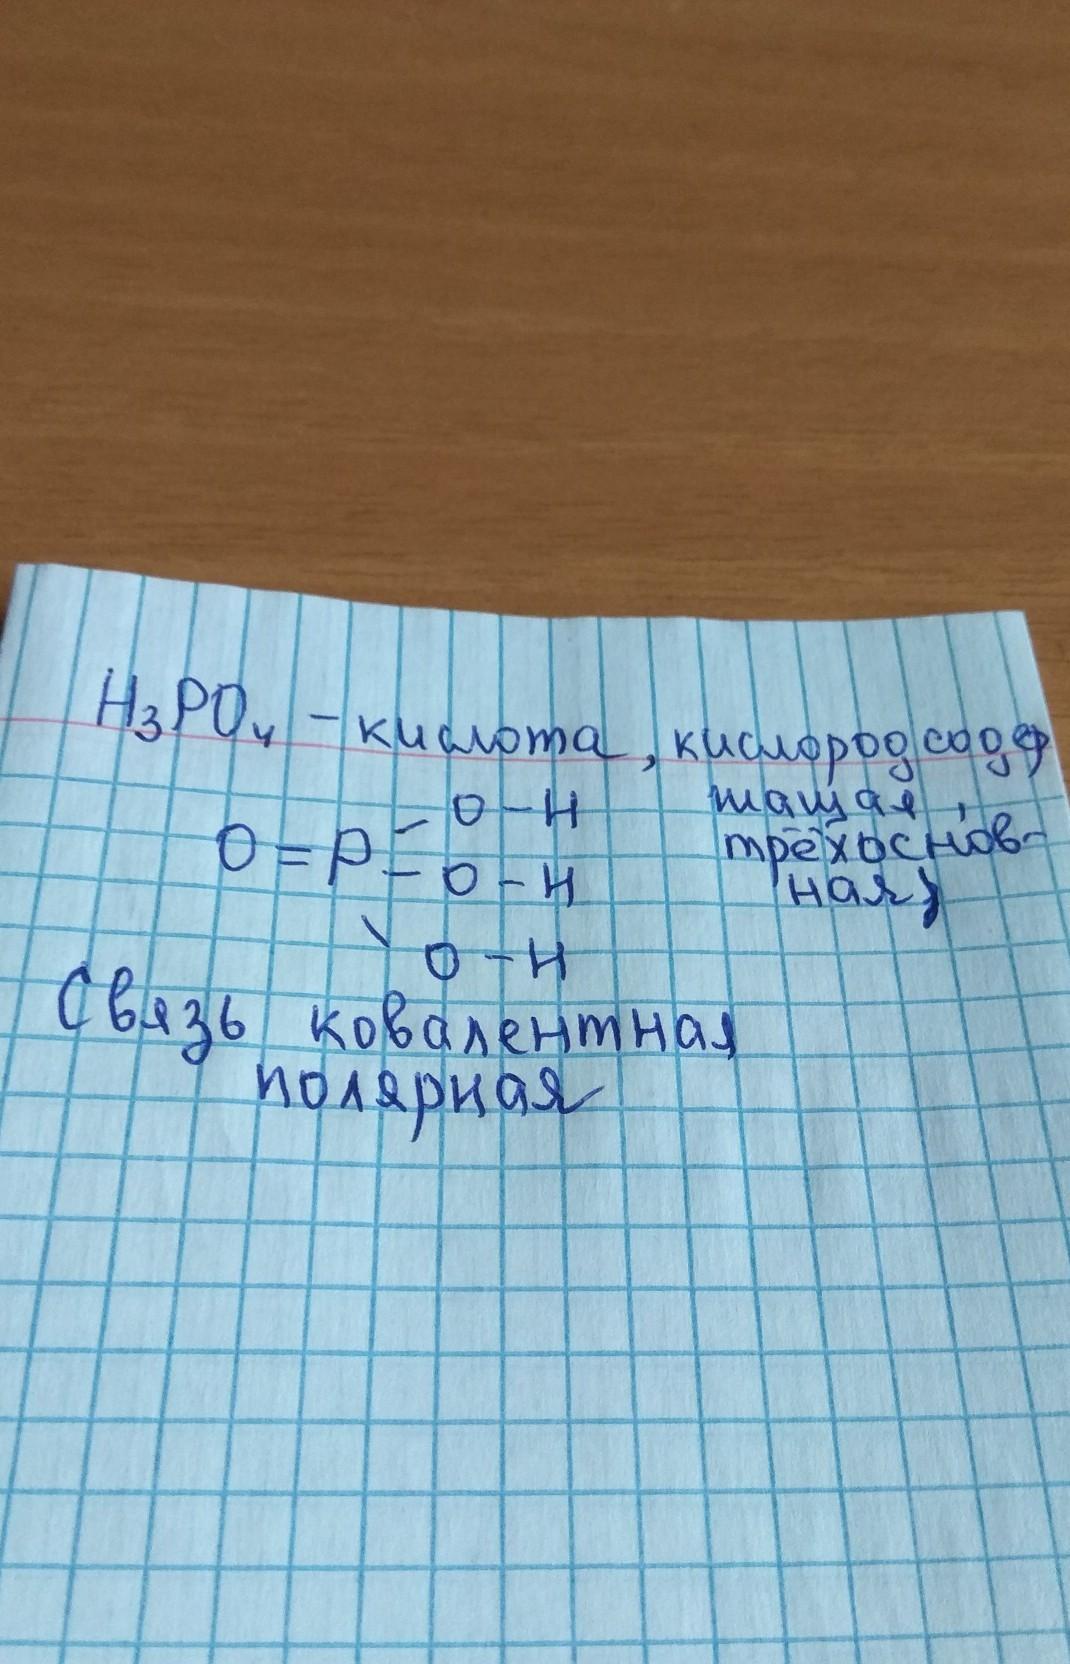 H₃PO₄ – кислота, кислородсодер
жащая,
O – H
O = P – O – H
трёхоснов-
ная;
O – H
Связь ковалентная
полярная